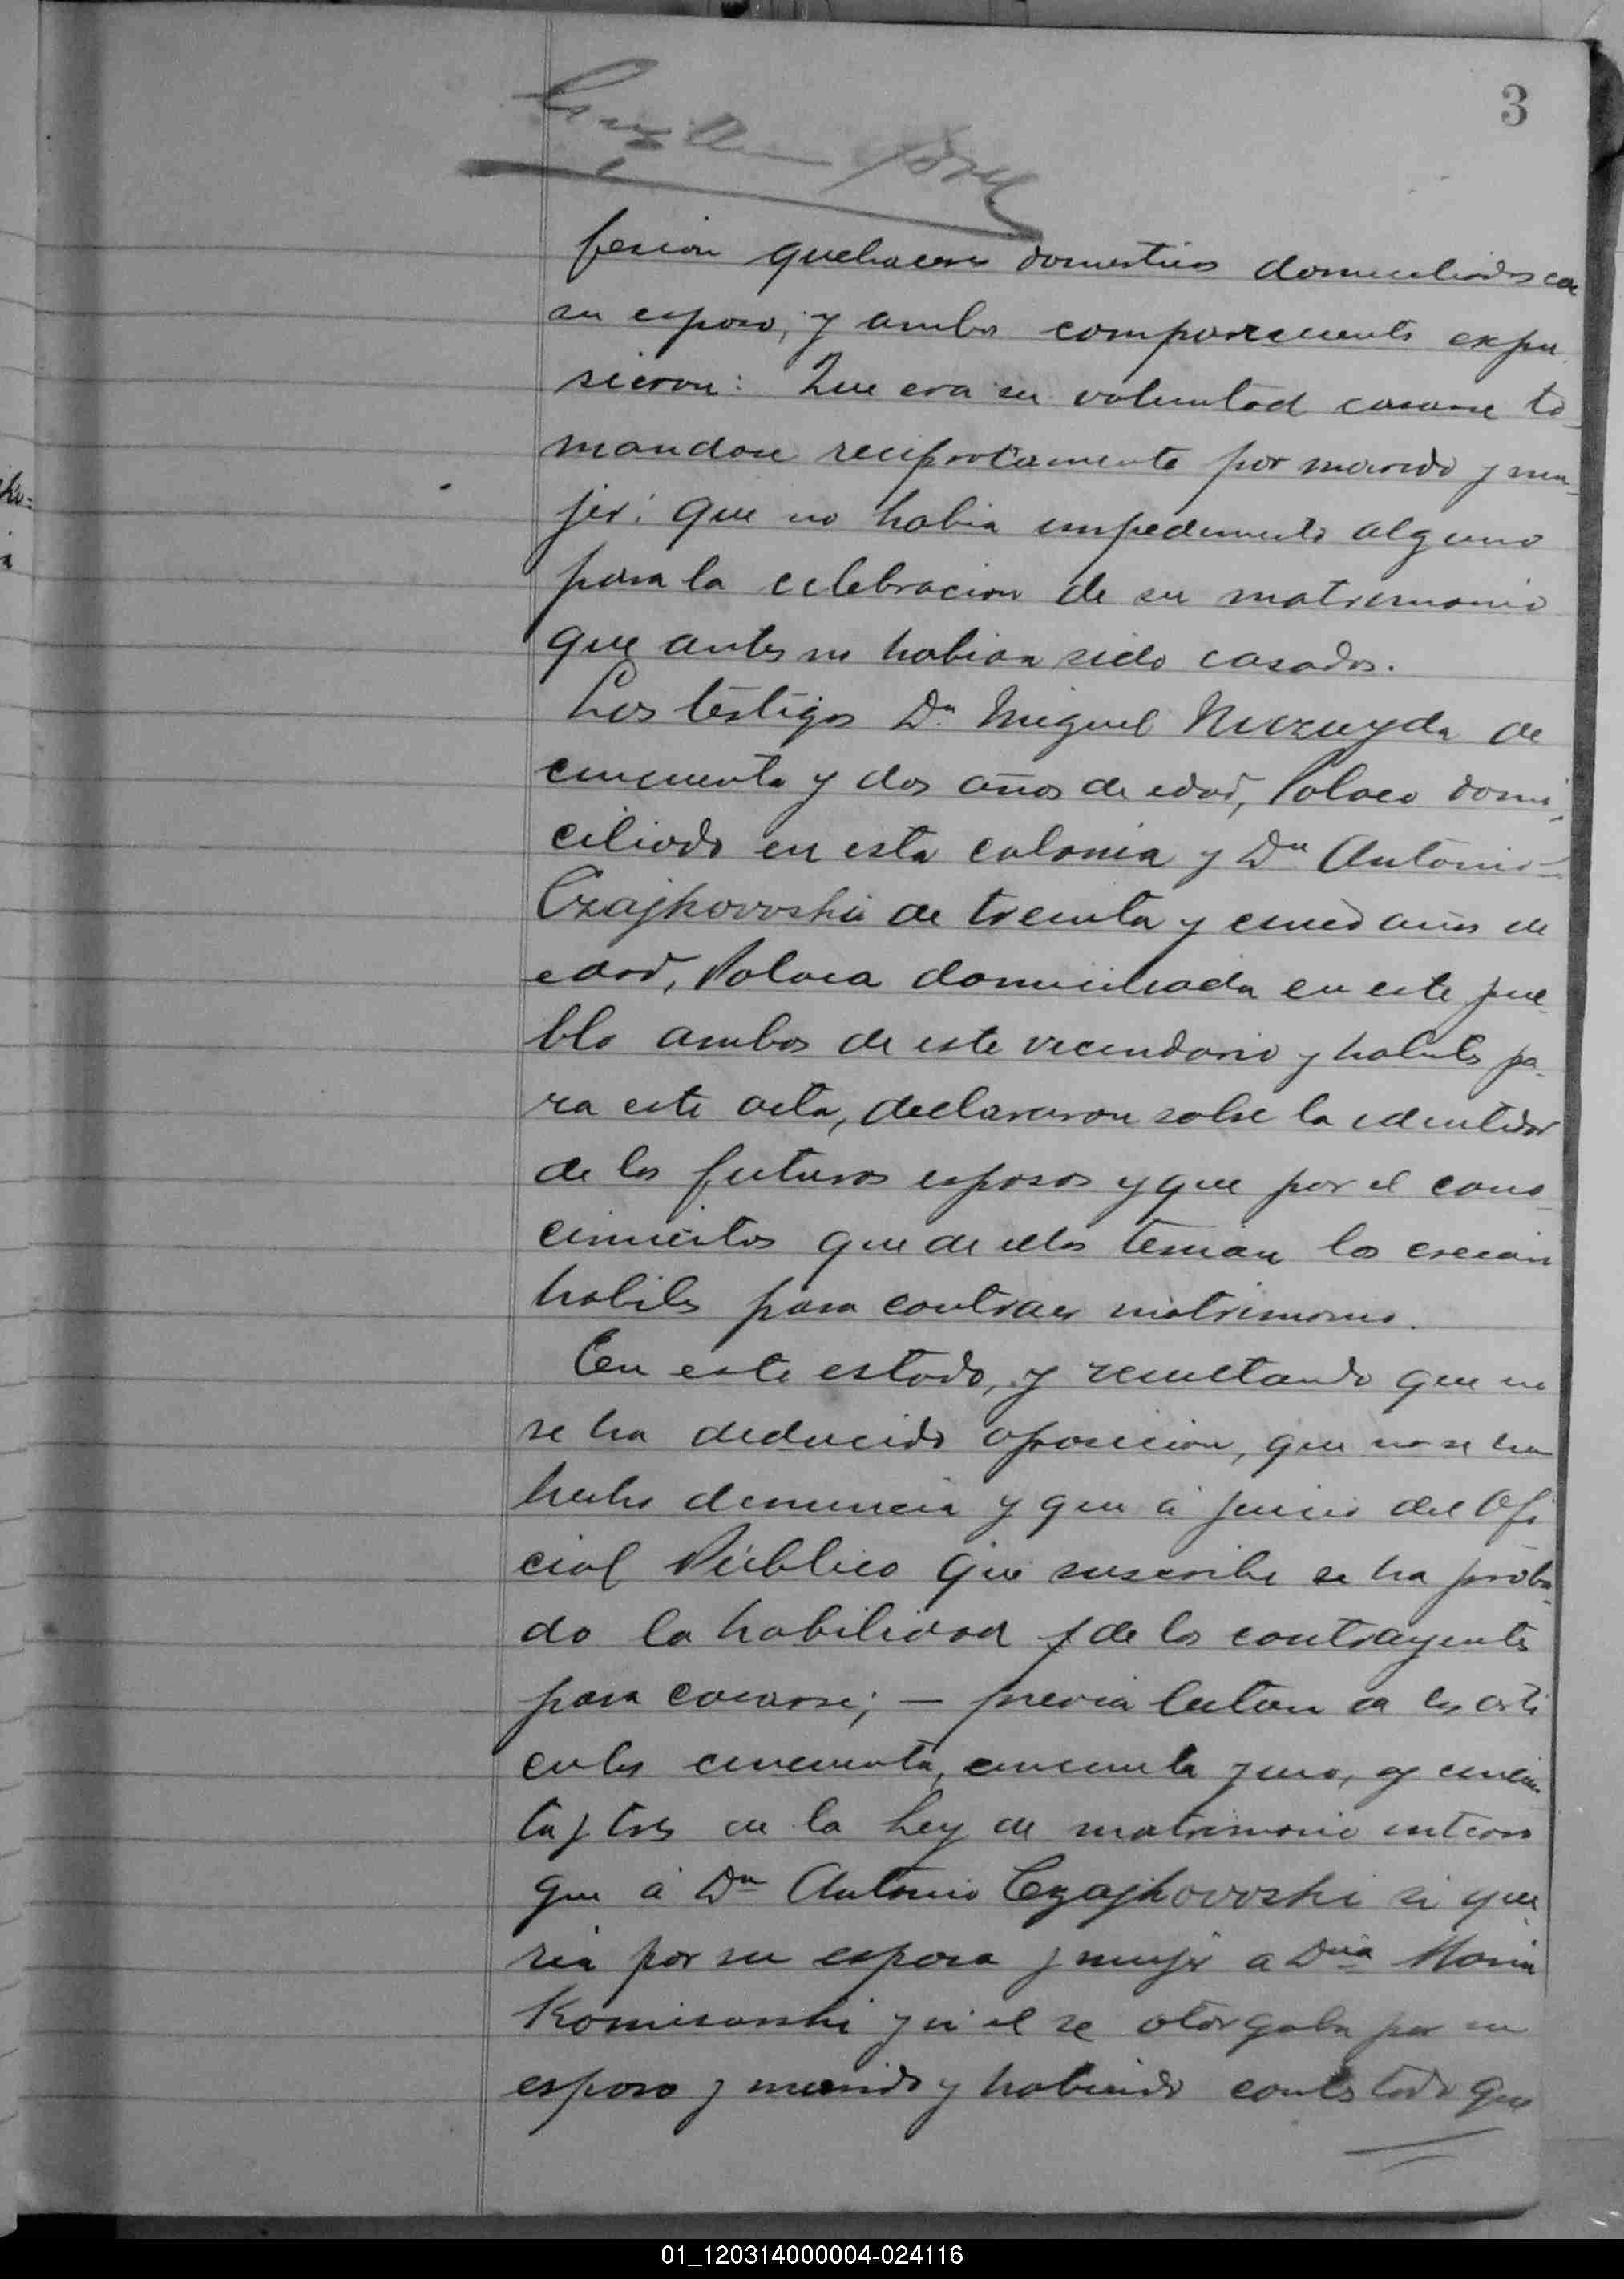 3
fesion quehaceres domesticos domiciliados con
su esposo, y ambos comparecientes expu
sieron: Que era su voluntad casarse to-
mandose reciprocamente por marido y mu-
jer: que no habia impedimento alguno
para la celebracion de su matrimonio
que antes no habian sido casados.
Los testigos Dn Miguel de
cincuenta y dos años de edad, Polaco domi-
ciliado en esta colonia y Dn Antonio
Czajkowski de treinta y cinco años de
edad, Polaca domiciliada en este pue-
blo ambos de este vecindario y habiles pa-
ra este acta, declararon sobre la identidad
de los futuros esposos y que por el cono
cimientos que de ellos tenian los creian
habiles para contraer matrimonio.
En este estado, y resultando que no
se ha deducido oposicion, que no se ha
hecho denuncia y que á juicio del Ofi
cial Público que suscribe se ha proba-
do la habilidad y de los contrayentes
para casarse; — previa lectura de los arti
culos cincuenta, cincuenta y uno, y cincuen-
ta y tres de la Ley de matrimonio interro
gue á Dn Antonio Czajkowski si que
ria por su esposa y mujer a Dña Maria
Komisarski y si el se otorgaba por su
esposo y marido y habiendo contestado que
01_120314000004-024116